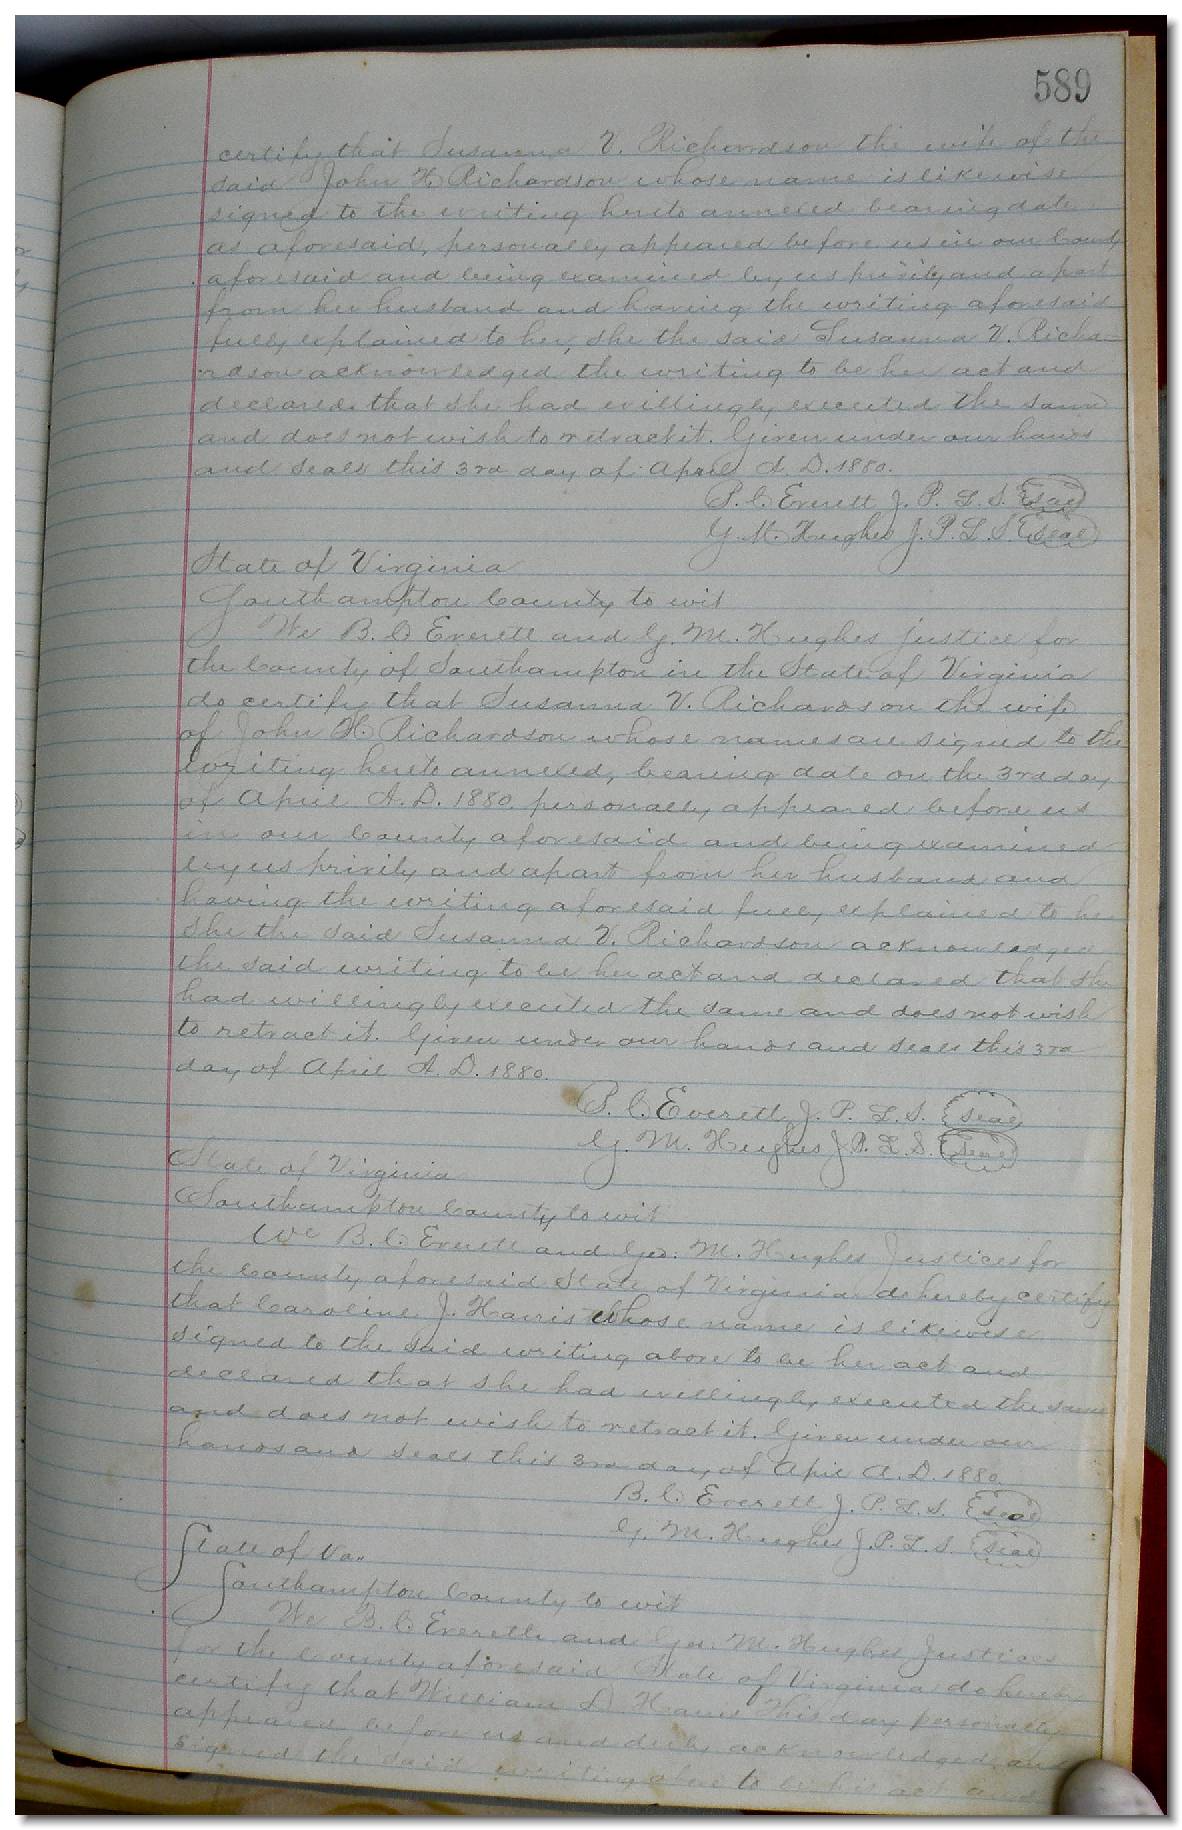 589
certify that Susanna V. Richardson the wife of the
said John H Richardson whose name is likewise
signed to the writing hereto annexed bearing date
as aforesaid, personally appeared before us in our County
aforesaid and being examined by us privily and apart
from her husband and having the writing aforesaid
fully explained to her, she the said Susanna V. Richa-
rdson acknowledged the writing to be her act and
declared that she had willingly executed the same
and does not wish to retract it. Given under our hands
and seals this 3rd day of April A. D. 1880.
B. C. Everett J. P. L. S. Seal
G. M. Hughes J. P. L. S. Seal
State of Virginia
Southampton County to wit
We B. C. Everett and G. M. Hughes justice for
the County of Southampton in the State of Virginia
do certify that Susanna V. Richardson the wife
of John H. Richardson whose names are signed to the
writing hereto annexed, bearing date on the 3rd day
of April A. D. 1880. personally appeared before us
in our County aforesaid and being examined
by us privily and apart from her husband and
having the writing aforesaid fully explained to her
She the said Susanna V. Richardson acknowledged
the said writing to be her act and declared that she
had willingly executed the same and does not wish
to retract it. Given under our hands and seals this 3rd
day of April A. D. 1880.
B. C. Everett J. P. L. S. Seal
G. M. Hughes J. P. L. S. Seal
State of Virginia
Southampton County to wit
We B. C. Everett and Geo. M. Hughes Justices for
the County aforesaid State of Virginia do hereby certify
that Caroline J. Harris whose name is likewise
signed to the said writing above to be her act and
declared that she had willingly executed the same
and does not wish to retract it. Given under our
hands and seals this 3rd day of Apil A. D. 1880
B. C. Everett J. P. L. S. Seal
G. M. Hughes J. P. L. S. Seal
State of Va.
Southampton County to wit
We B. C. Everett and Geo. M. Hughes Justices
for the County aforesaid State of Virginia do
certify that William D. Harris this day personally
appeared before us and duly acknowledged and
signed the said writing above to be his act and